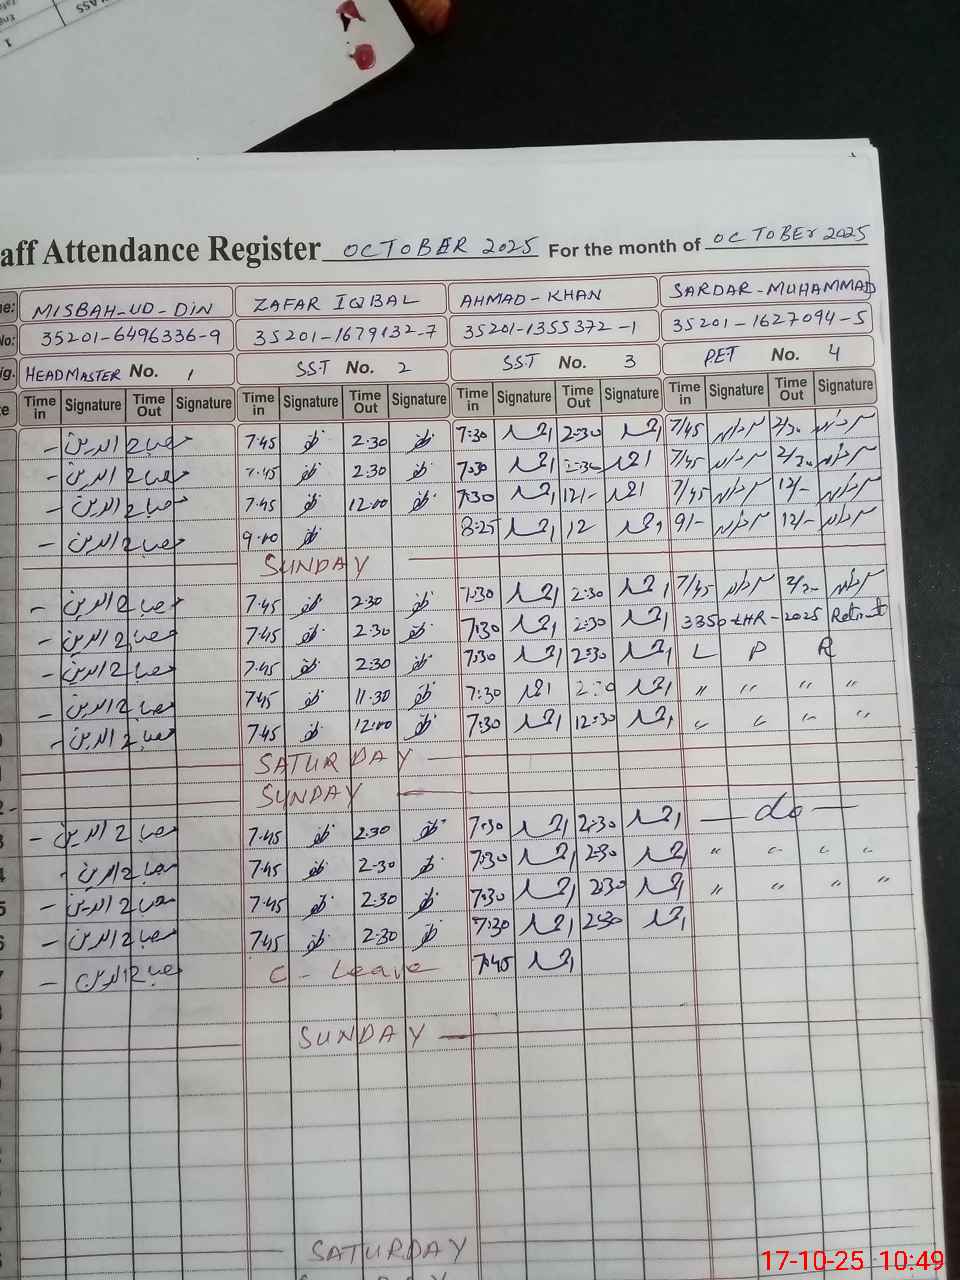 CLASS
1
aff Attendance Register OCTOBER 2025 For the month of OCTOBER 2025
e: MISBAH-UD-DIN ZAFAR IQBAL AHMAD-KHAN SARDAR-MUHAMMAD
No: 35201-6496336-9 35201-1679132-7 35201-1355372-1 35201-1627094-5
ig. HEADMASTER No. 1 SST No. 2 SST No. 3 PET No. 4
e Time in Signature Time Out Signature Time in Signature Time Out Signature Time in Signature Time Out Signature Time in Signature Time Out Signature
- مصباح الدین 7.45 ظفر 2.30 ظفر 7:30 احمد 2:30 احمد 7/45 سردار 2/30 سردار
- مصباح الدین 7.45 ظفر 2.30 ظفر 7:30 احمد 2:30 احمد 7/45 سردار 2/30 سردار
- مصباح الدین 7.45 ظفر 12.00 ظفر 7:30 احمد 12/- احمد 7/45 سردار 12/- سردار
- مصباح الدین 9.00 ظفر 8:25 احمد 12 احمد 9/- سردار 12/- سردار
SUNDAY
- مصباح الدین 7.45 ظفر 2.30 ظفر 7:30 احمد 2:30 احمد 7/45 سردار 2/30 سردار
- مصباح الدین 7.45 ظفر 2.30 ظفر 7:30 احمد 2:30 احمد 3350-LHR-2025
- مصباح الدین 7.45 ظفر 2.30 ظفر 7:30 احمد 2:30 احمد L P R
- مصباح الدین 7.45 ظفر 11.30 ظفر 7:30 احمد 2:30 احمد " " " "
- مصباح الدین 7.45 ظفر 12.00 ظفر 7:30 احمد 12:30 احمد " " " "
SATURDAY
SUNDAY
- مصباح الدین 7.45 ظفر 2.30 ظفر 7:30 احمد 2:30 احمد - do -
4 مصباح الدین 7.45 ظفر 2.30 ظفر 7:30 احمد 2:30 احمد " " " "
5 - مصباح الدین 7.45 ظفر 2.30 ظفر 7:30 احمد 2:30 احمد " " " "
6 - مصباح الدین 7.45 ظفر 2.30 ظفر 7:30 احمد 2:30 احمد
7 - مصباح الدین C - Leave 7:45 احمد
SUNDAY
SATURDAY
17-10-25 10:49